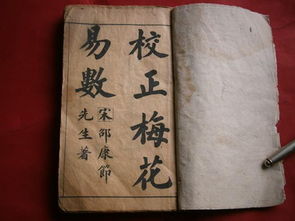 校正梅花
易數
宋邵康節
先生著